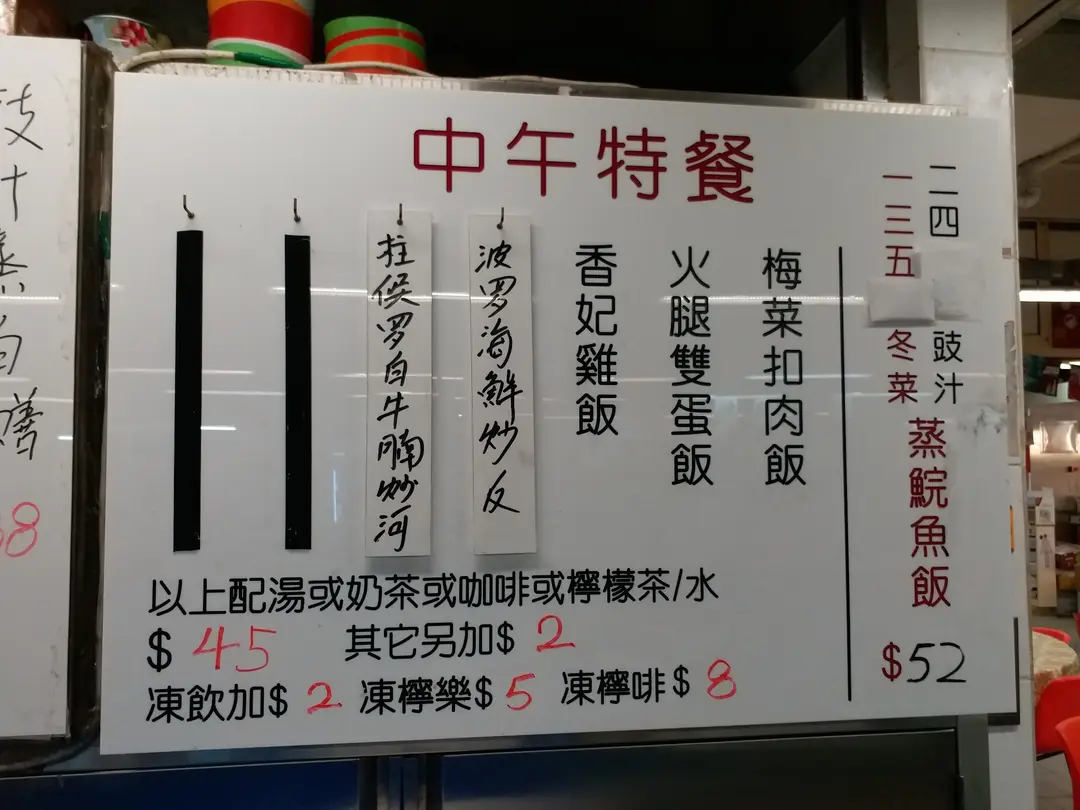 中午特餐
二四 豉汁
一三五 冬菜
蒸鯇魚飯
$52
梅菜扣肉飯
火腿雙蛋飯
香妃雞飯
波罗海鮮炒反
柱候罗白牛腩炒河
以上配湯或奶茶或咖啡或檸檬茶/水
$ 45 其它另加$ 2
凍飲加$ 2 凍檸樂$ 5 凍檸啡$ 8